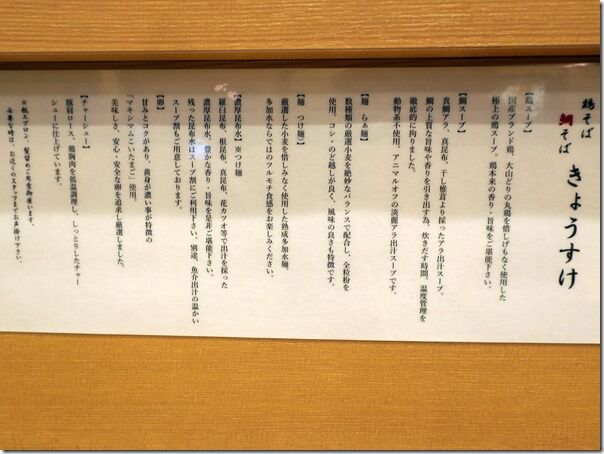 鶏そば
鯛そば
きょうすけ
【鶏スープ】
国産ブランド鶏、大山どりの丸鶏を惜しげもなく使用した
極上の鶏スープ。鶏本来の香り・旨味をご堪能下さい。
【鯛スープ】
真鯛アラ、真昆布、干し椎茸より採ったアラ出汁スープ。
鯛の上質な旨味や香りを引き出す為、炊きだす時間、温度管理を
徹底的に拘りました。
動物系不使用、アニマルオフの淡麗アラ出汁スープです。
【麺 らぁ麺】
数種類の厳選小麦を絶妙なバランスで配合し、全粒粉を
使用。コシ・のど越しが良く、風味の良さも特徴です。
【麺 つけ麺】
厳選した小麦を惜しみなく使用した熟成多加水麺。
多加水ならではのツルモチ食感をお楽しみください。
【濃厚昆布水】※つけ麺
羅臼昆布、根昆布、真昆布、花カツオ等で出汁を採った
濃厚昆布水。豊かな香り・旨味を是非ご堪能下さい。
残った昆布水はスープ割にご利用下さい。別途、魚介出汁の温かい
スープ割もご用意しております。
【卵】
甘みとコクがあり、黄身が濃い事が特徴の
「マキシマムこいたまご」使用。
美味しさ、安心・安全な卵を追求し厳選しました。
【チャーシュー】
豚肩ロース、鶏胸肉を低温調理し、しっとりしたチャー
シューに仕上げています。
※紙エプロン、髪留めご用意御座います。
必要な時は、お近くのスタッフまでお声掛け下さい。